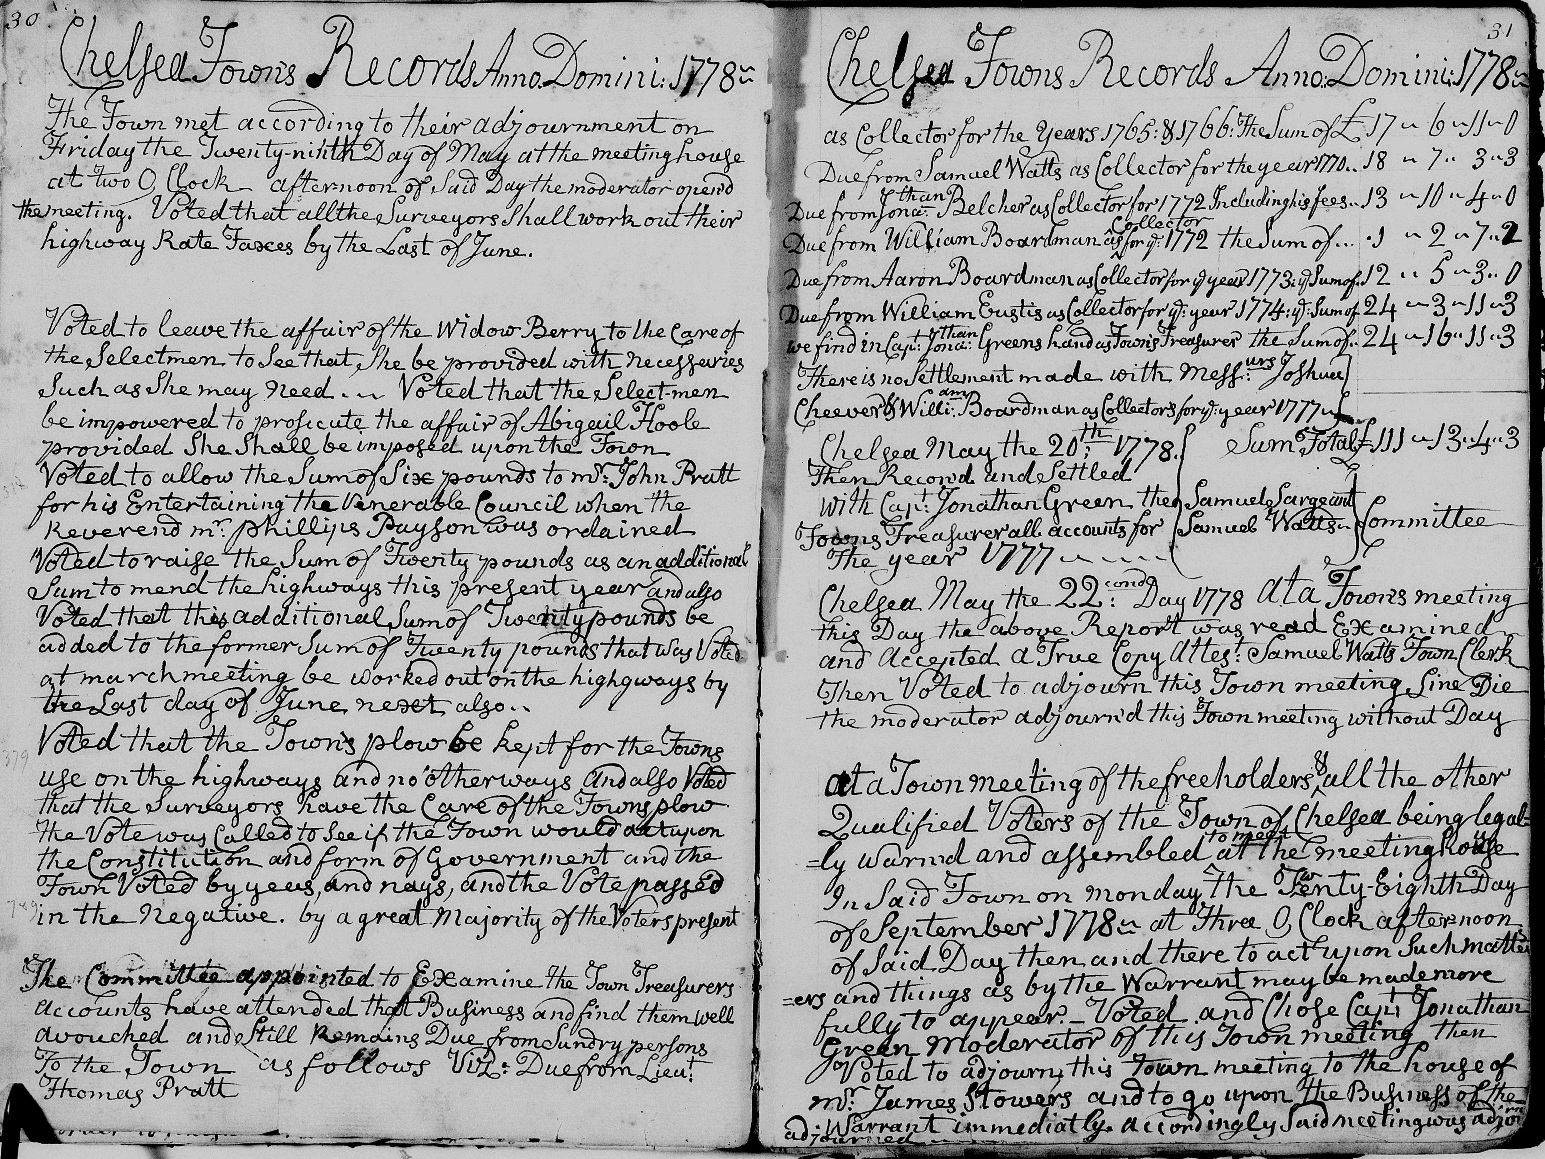 30
Chelsea Towns Records Anno: Domini: 1778
The Town met according to their adjournment on
Friday the Twenty-ninth Day of May at the meeting house
at two O, Clock afternoon of Said Day the moderator opend
the meeting. Voted that all the Surveyors Shall work out their
highway Rate Taxes by the Last of June.
Voted to leave the affair of the Widow Berry to the Care of
the Selectmen to See that She be provided with necessaries
Such as She may need... Voted that the Select-men
be impowered to prosicute the affair of Abigail Hoole
provided She Shall be imposed upon the Town
Voted to allow the Sum of Six pounds to mr. John Pratt
for his Entertaining the Venerable Council when the
Reverend mr. phillips Payson was ordained
Voted to raise the Sum of Twenty pounds as an additional
Sum to mend the highways this present year and also
Voted that this additional Sum of Twenty pounds be
added to the former Sum of Twenty pounds that was Voted
at march meeting be worked out on the highgways by
the Last day of June next also..
Voted that the Town's plow be kept for the Towns
use on the highways and no other ways and also Voted
that the Surveyors have the Care of the Towns plow
The Vote was Called to See if the Town would act upon
the Constitution and form of Government and the
Town Voted by yeas, and nays, and the Vote passed
in the Negative. by a great Majority of the Voters present
The Committee appointed to Examine the Town Treasurers
accounts have attended that Business and find them well
avouched and Still Remains Due from Sundry persons
To the Town as follows Viz: Due from Lieut.
Thomas Pratt
31
Chelsea Towns Records Anno: Domini: 1778
as Collector for the Years 1765: & 1766: The Sum of £ 17 " 6 " 11 " 0
Due from Samuel Watts as Collector for the year 1770.. 18 " 7 " 3 " 3
Due from Jona:than Belcher as Collector for 1772 Including his fees.. 13 " 10 " 4 " 0
Due from William Boardman as Collector for ye: 1772 the Sum of... 1 " 2 " 7 " 2
Due from Aaron Boardman as Collector for ye year 1773: ye Sum of. 12 " 5 " 3 " 0
Due from William Eustis as Collector for ye: year 1774: ye: Sum of 24 " 3 " 11 " 3
we find in Capt: Jona:than Greens hand as Town's Treasurer the Sum of.. 24 " 16 " 11 " 3
There is no Settlement made with Messurs: Joshua
Cheever & Willi:am Boardman as Collectors for ye: year 1777
Chelsea May the 20:th 1778. Sum Total £ 111 " 13 " 4 " 3
Then Recond and Settled
with Capt. Jonathan Green the Samuel Sargeant
Towns Treasurer all accounts for Samuel Watts Committee
The year 1777
Chelsea May the 22:cond Day 1778 At a Town's meeting
this Day the above Report was read Examined
and Accepted a True Copy Attest: Samuel Watts Town Clerk
Then Voted to adjourn this Town meeting Sine Die
the moderator adjournd this Town meeting without Day
at a Town meeting of the freeholders & all the other
Qualified Voters of the Town of Chelsea being legal=
=ly warnd and assembled to meet at the meeting house
In Said Town on monday The Twenty-Eighth Day
of September 1778 at Thre O, Clock afternoon
of Said Day then and there to act upon Such matte
=ers and things as by the Warrant may be made more
fully to appear. Voted and Chose Capt: Jonathan
Green Moderator of this Town meeting then
Voted to adjourn this Town meeting to the house of
mr. James Stowers and to go upon the Business of the
Warrant immediatly. accordingly Said meeting was adjorn
adjourned